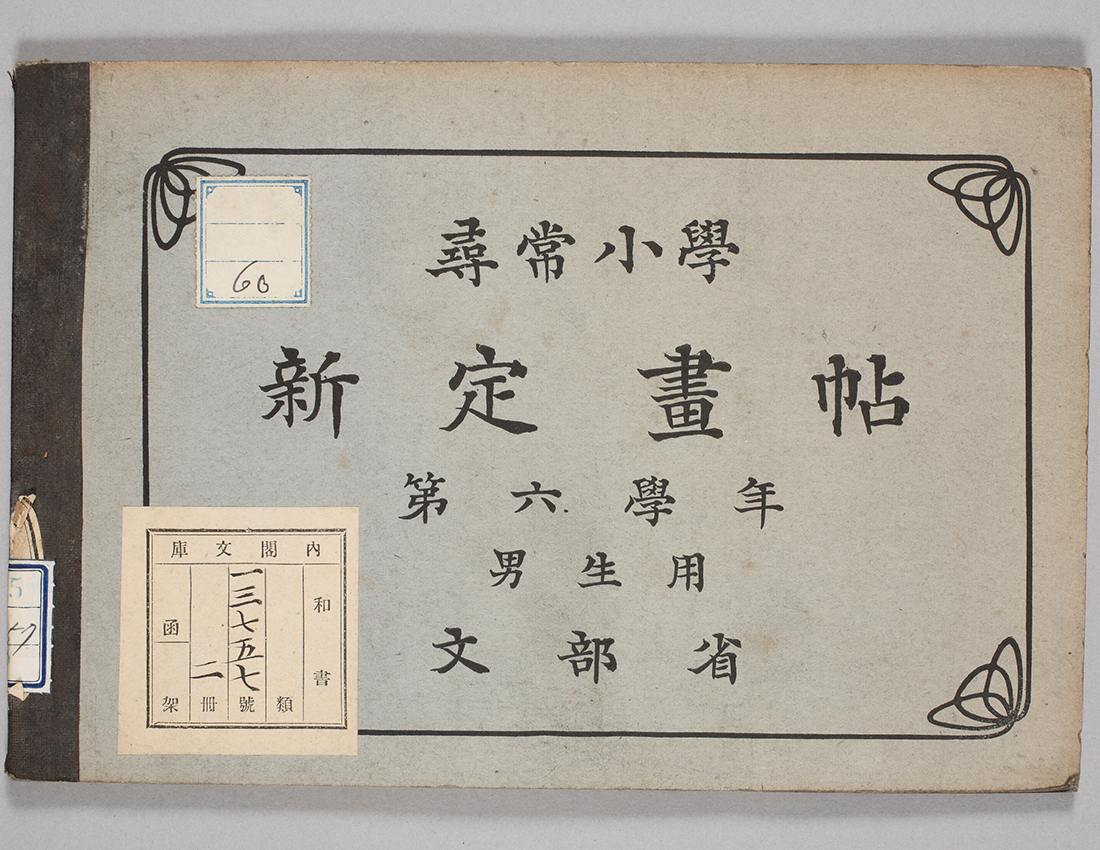 尋常小學
新定畫帖
第六學年
男生用
文部省
60
內閣文庫
和書
類
一三七五七號
二冊
函
架
5